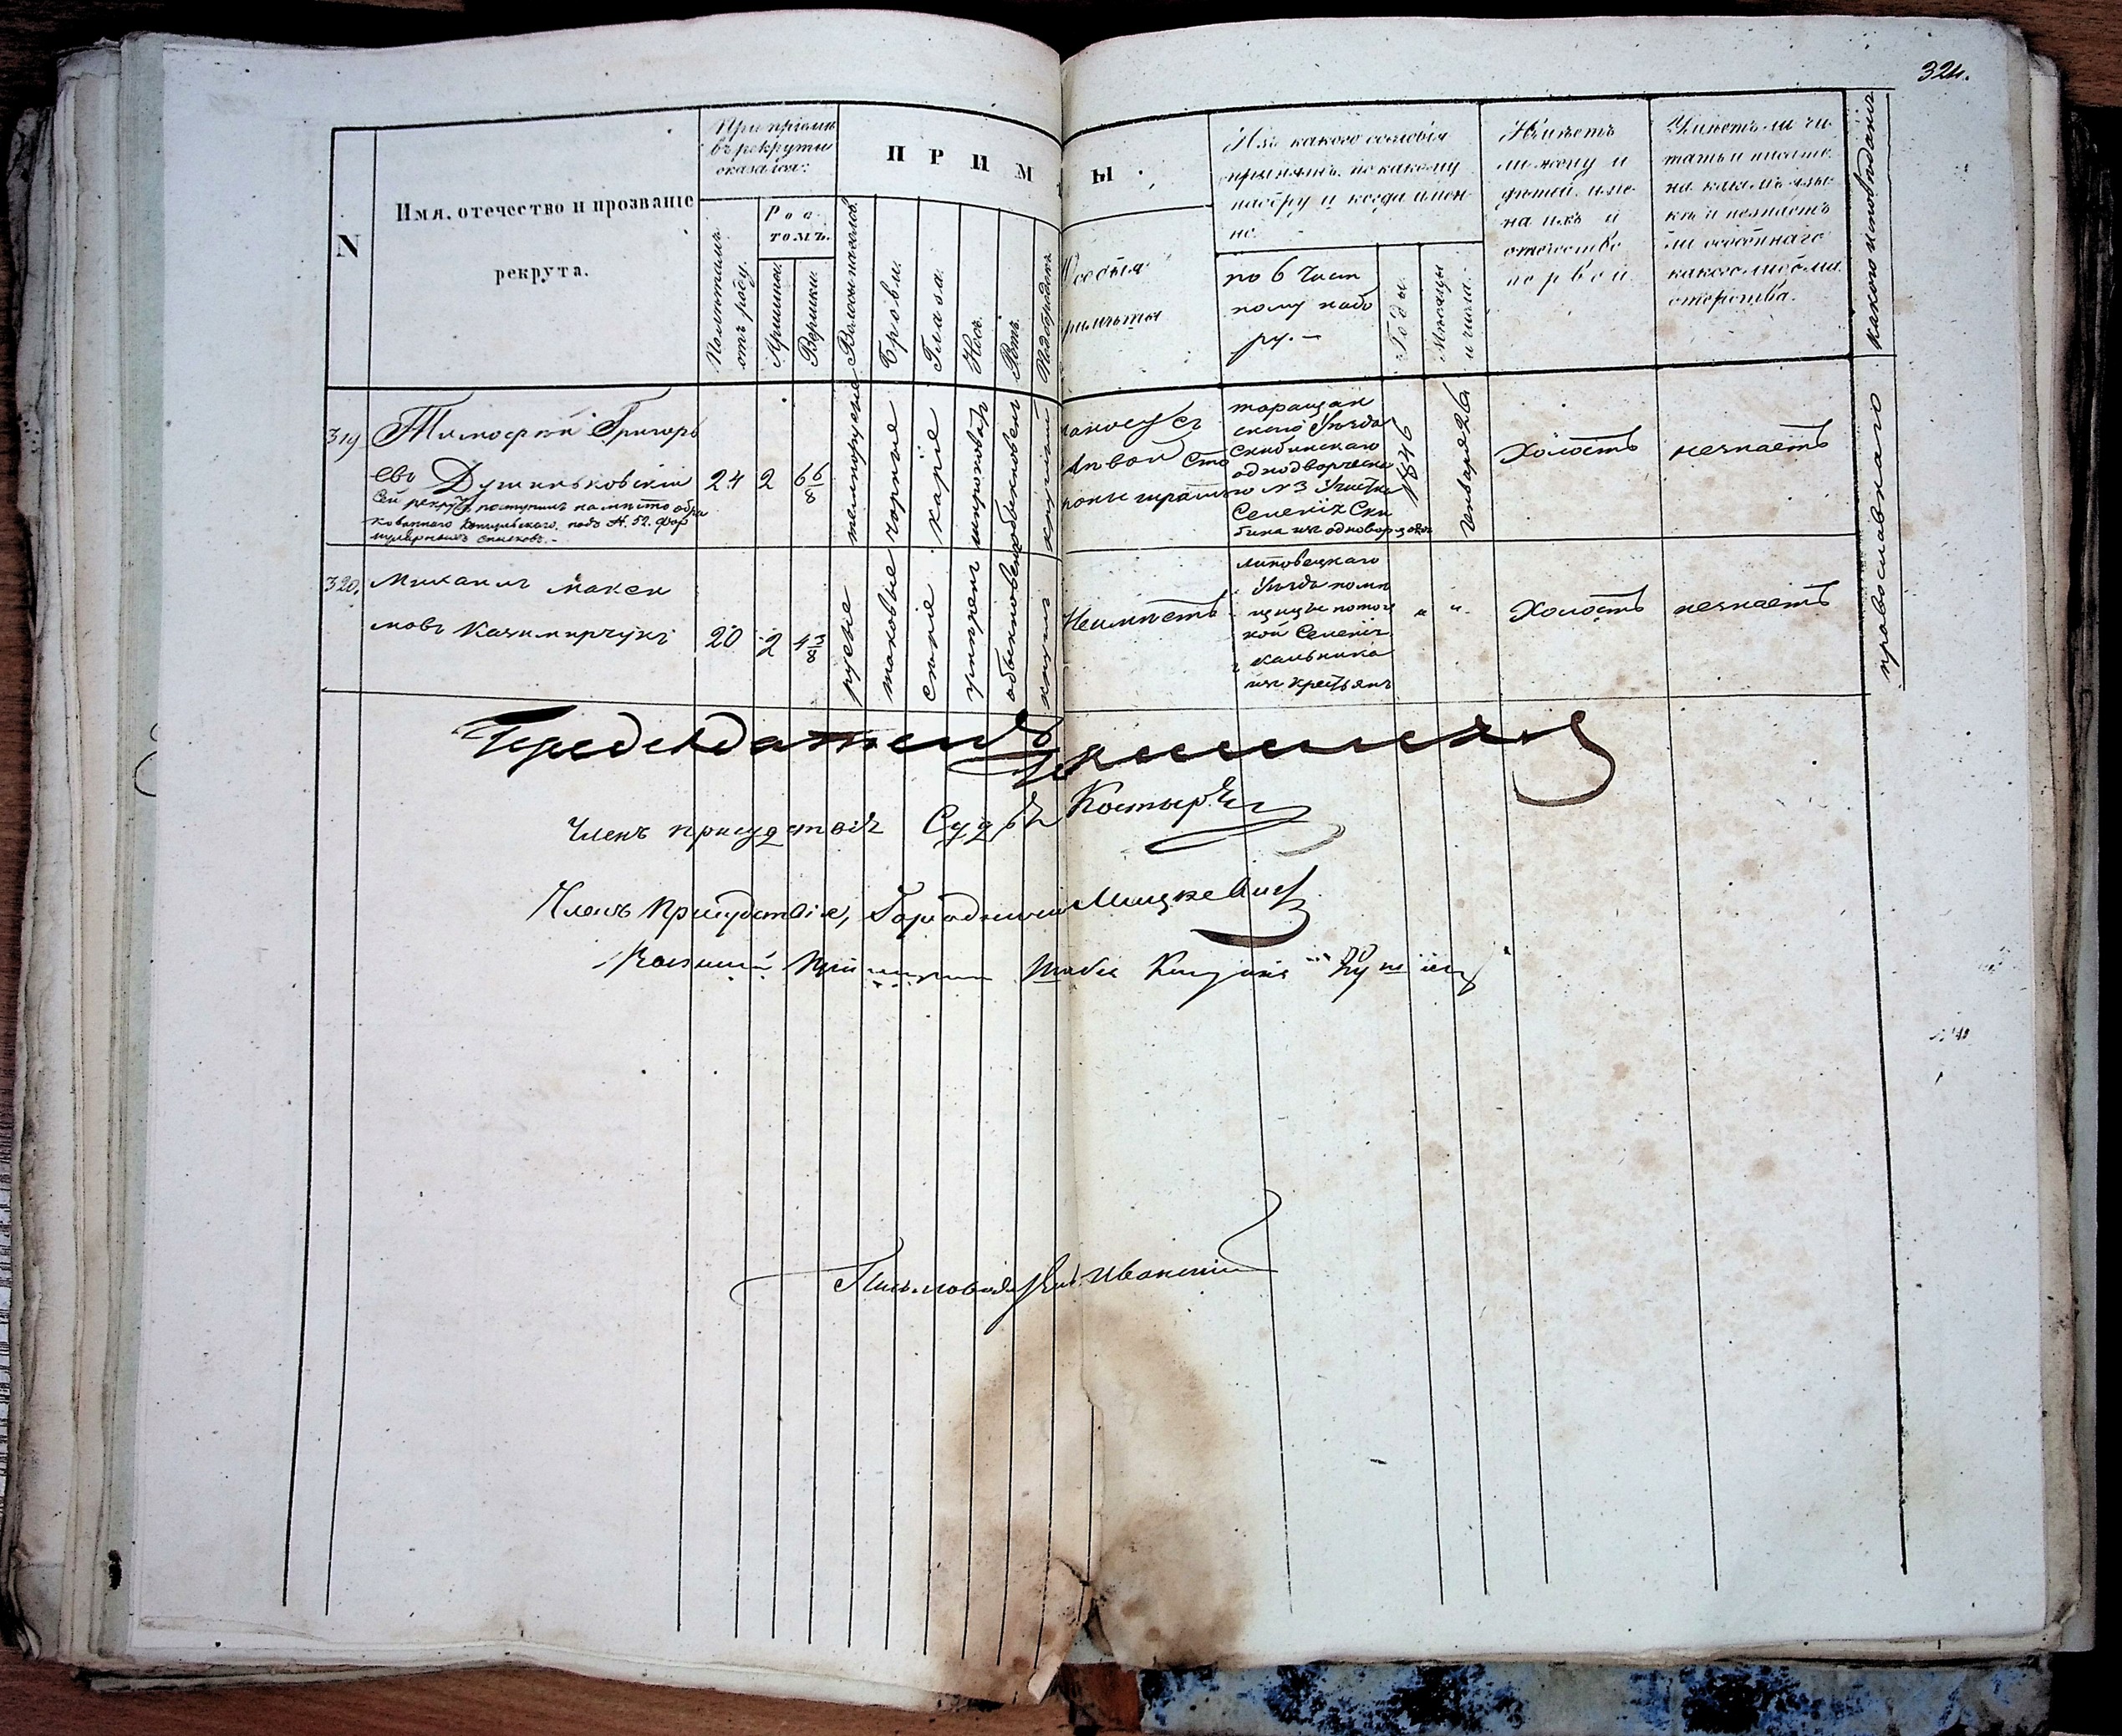 324.
N
Имя, отечество и прозваніе
рекрута.
При пріемѣ
въ рекруты
оказался:
Полныхъ лѣтъ
отъ роду.
Рос
томъ.
Аршины.
Вершки.
ПРИМѢТЫ.
Волосы на головѣ.
Брови.
Глаза.
Носъ.
Ротъ.
Подбородокъ.
Особыя
примѣты
Изъ какого сословія
принятъ, по какому
набору и когда имен
но.
по 6 Част
ному набо
ру.
Годы.
Мѣсяцы
и числа.
Имѣетъ
ли жену и
дѣтей, име
на ихъ и
отечество
первой
Умѣетъ ли чи
тать и писать,
на какомъ язы
кѣ и не знаетъ
ли особеннаго
какого либо ма
стерства.
какого исповѣданія
319
Тимофей Григорь
евъ Душиньковскій
Сей рекрутъ поступилъ на мѣсто обра
кованнаго
подъ N. 52. фор
мулярныхъ списковъ.
24
2
6 6/8
темнорусые
чорные
каріе
широковатъ
обыкновенъ
круглый
сто
роны
таращан
скаго Уѣзда
Скибинскаго
однодворческа
го N 3 Участка
Селенія Ски
бина изъ однодворцовъ
1846
Января 26
Холостъ
незнаетъ
православнаго
320.
Михаилъ Макси
мовъ Казимирчукъ
20
2
4 3/8
русые
таковые
сѣріе
умѣренъ
обыкновенъ
круглъ
Неимѣетъ
липовецкаго
Уѣзда помѣ
щицы Потоц
кой Селенія
Кальника
изъ крестьянъ
" "
Холостъ
незнаетъ
Предсѣдатель
Членъ присудствія Судья Костыр
Членъ Присудствія, Городничій Мицкевичъ
Военный Пріемщикъ Штабсъ Капитанъ
Письмоводитель Ивановскій